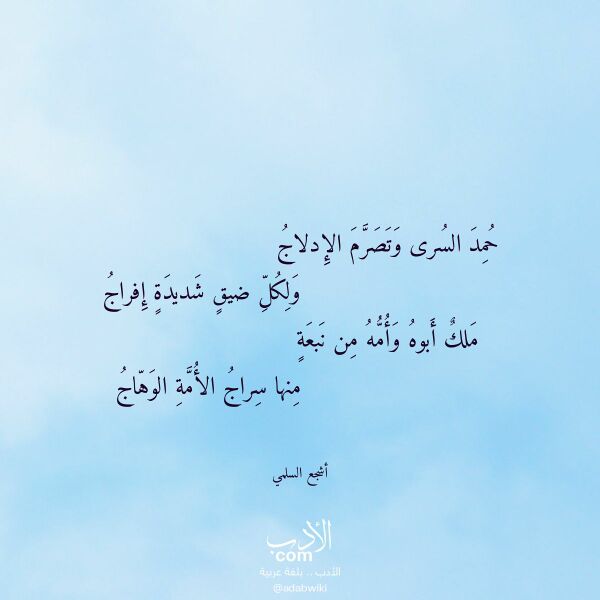 حُمِدَ السُرى وَتَصَرَّمَ الإِدلاجُ
وَلِكُلِّ ضيقٍ شَديدَةٍ إِفراجُ
مَلكٌ أَبوهُ وَأُمُّهُ مِن نَبعَةٍ
مِنها سِراجُ الأُمَّةِ الوَهّاجُ
أشجع السلمي
الأدب
com
الأدب .. بلغة عربية
@adabwiki